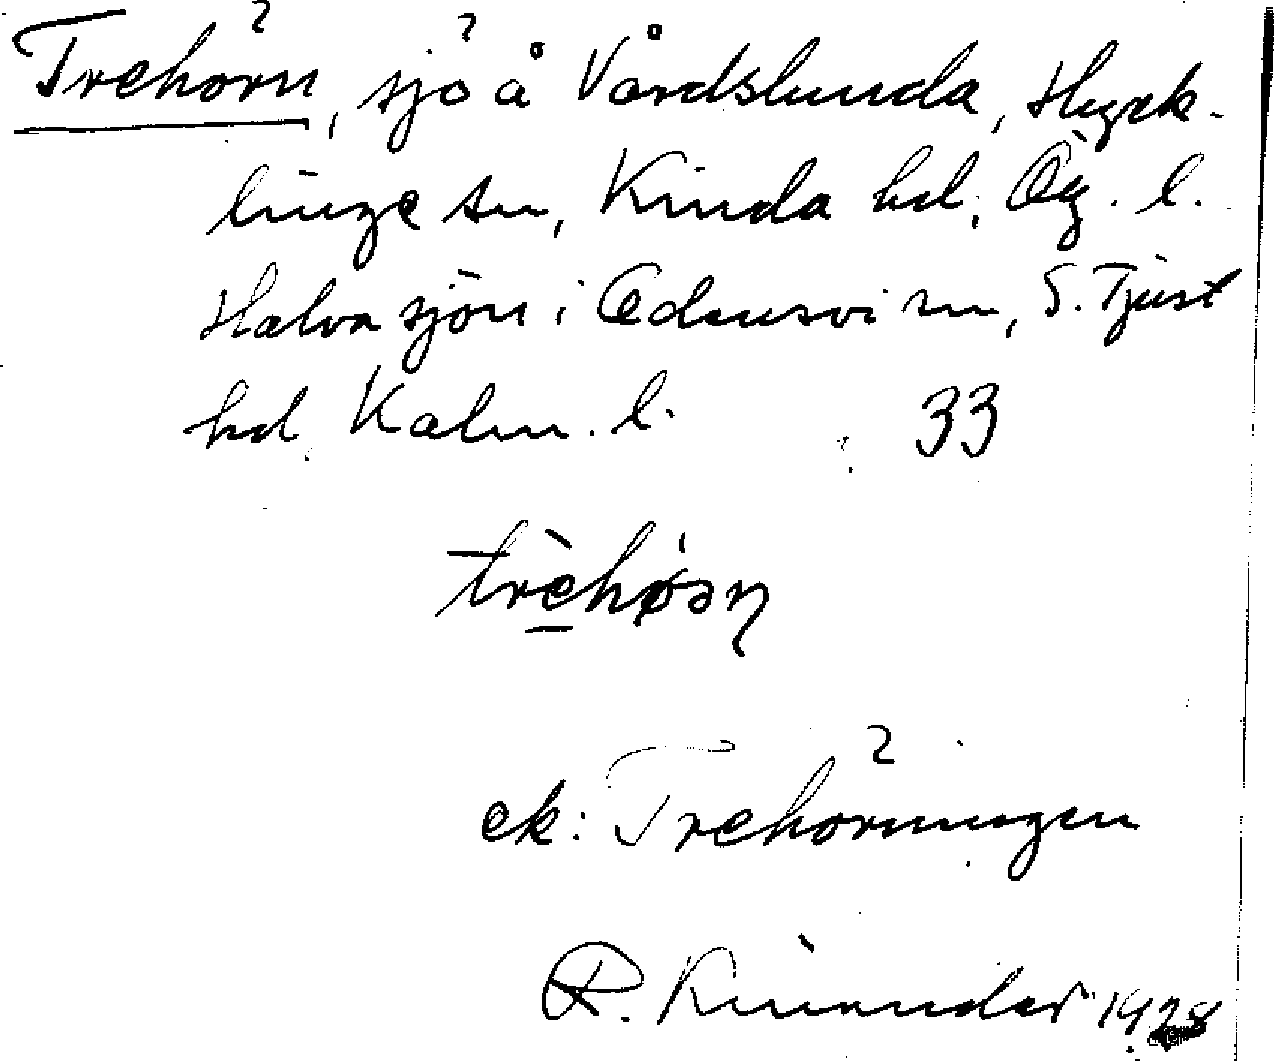 Trehörn, sjö å Vårdslunda, Hyck-
linge sn, Kinda hd, Ög. l.
Halva sjön i Odensvi sn, S. Tjust
hd Kalm. l. 33
trèhøən
ek: Trehörningen
R. Kinander 1928